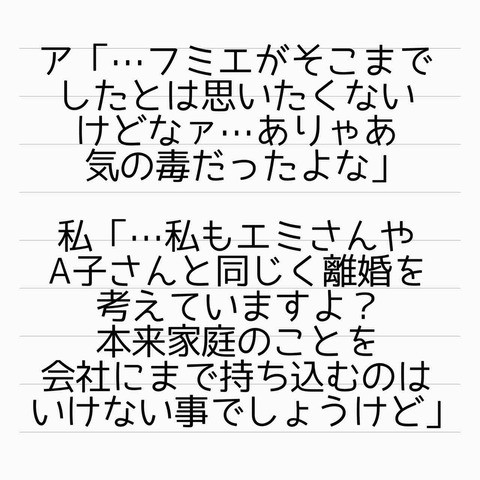 ア「…フミエがそこまで
したとは思いたくない
けどなァ…ありゃあ
気の毒だったよな」
私「…私もエミさんや
A子さんと同じく離婚を
考えていますよ？
本来家庭のことを
会社にまで持ち込むのは
いけない事でしょうけど」